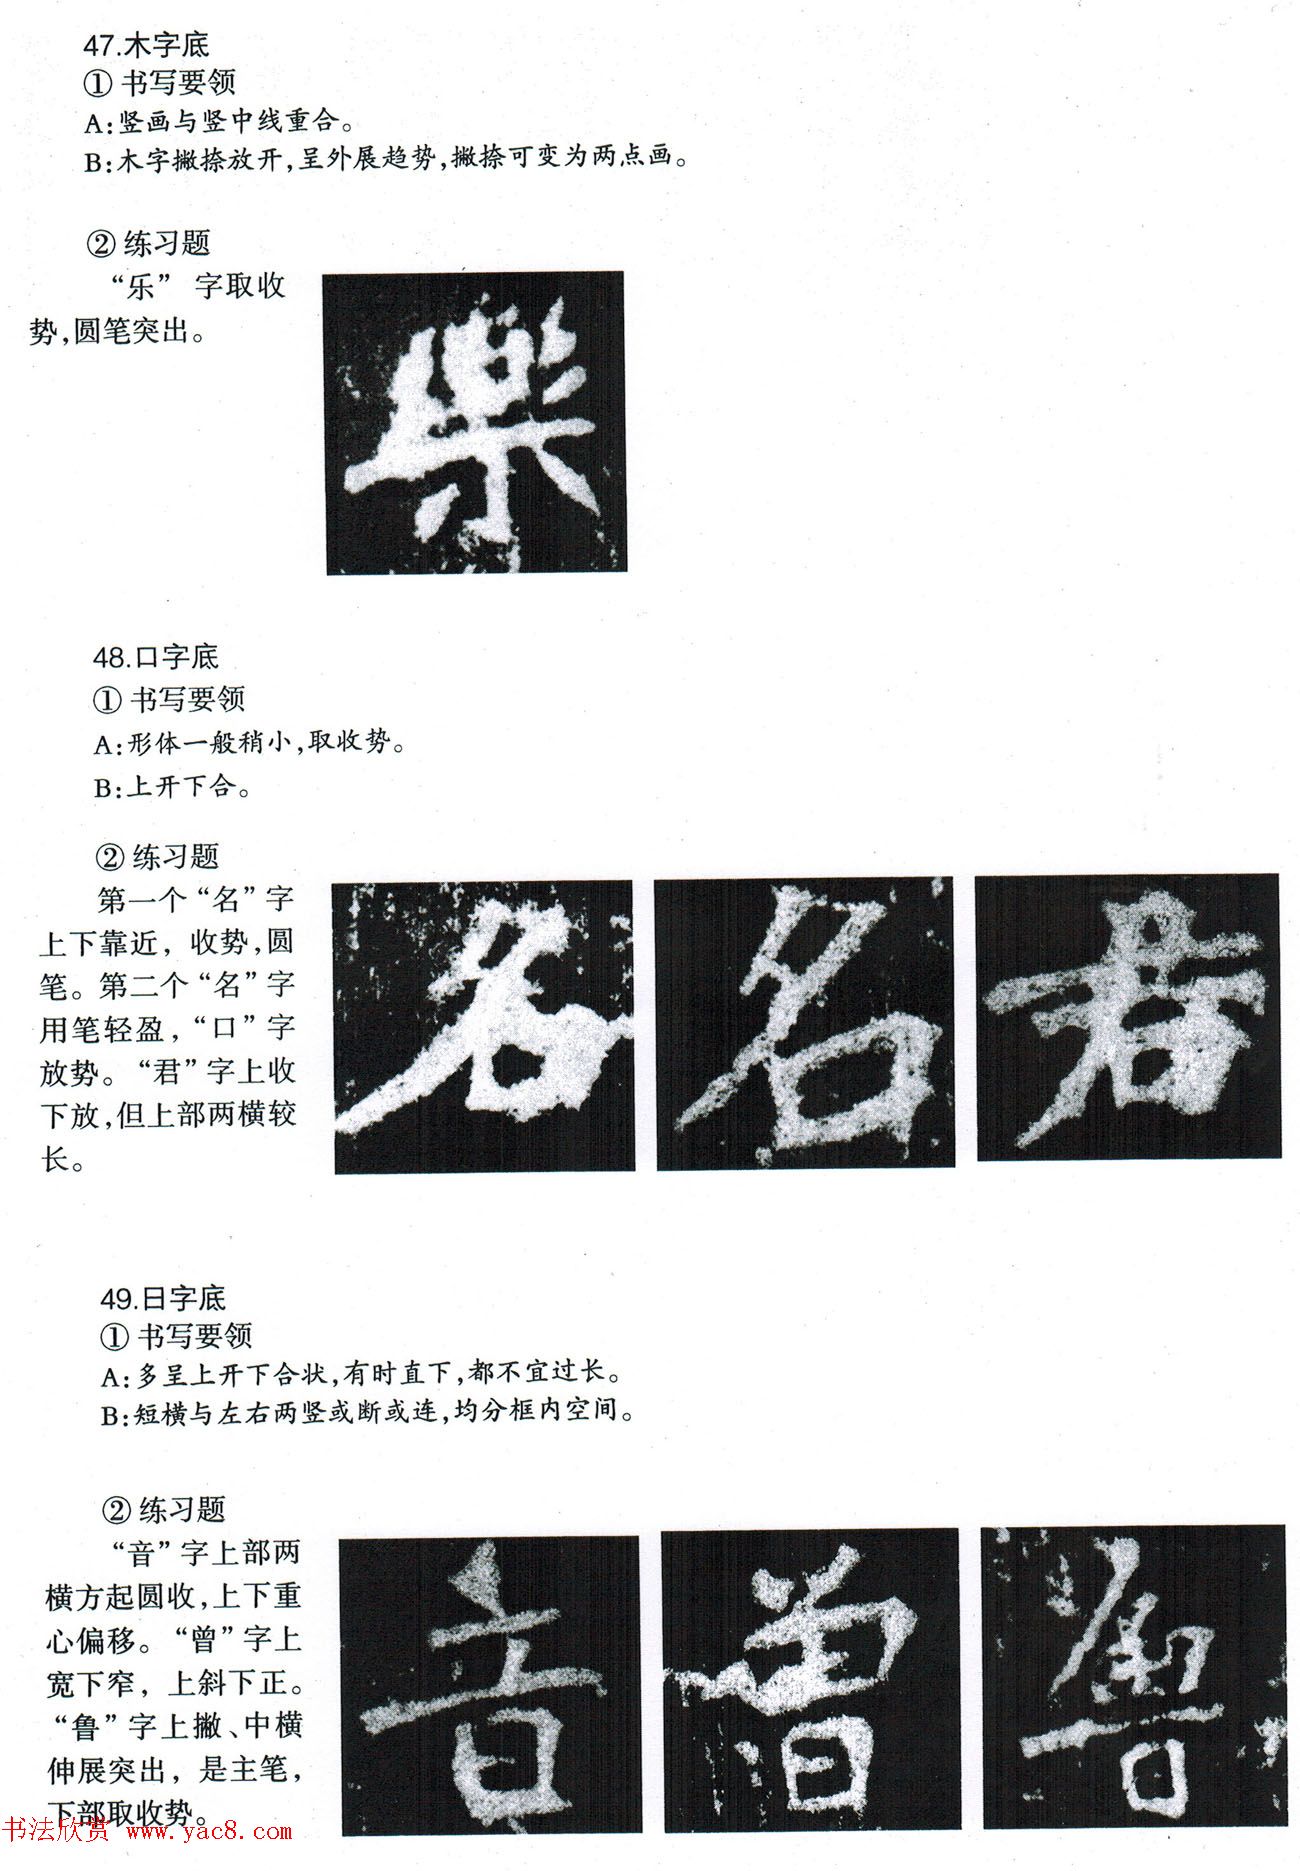 47.木字底
① 书写要领
A:竖画与竖中线重合。
B:木字撇捺放开,呈外展趋势,撇捺可变为两点画。
② 练习题
“乐” 字取收
势,圆笔突出。
樂
48.口字底
① 书写要领
A:形体一般稍小,取收势。
B:上开下合。
② 练习题
第一个“名”字
上下靠近, 收势,圆
笔。第二个“名”字
用笔轻盈,“口”字
放势。“君”字上收
下放,但上部两横较
长。
名 名 君
49.日字底
① 书写要领
A:多呈上开下合状,有时直下,都不宜过长。
B:短横与左右两竖或断或连,均分框内空间。
② 练习题
“音”字上部两
横方起圆收,上下重
心偏移。“曾”字上
宽下窄, 上斜下正。
“鲁”字上撇、中横
伸展突出, 是主笔,
下部取收势。
音 曾 魯
书法欣赏 www.yac8.com